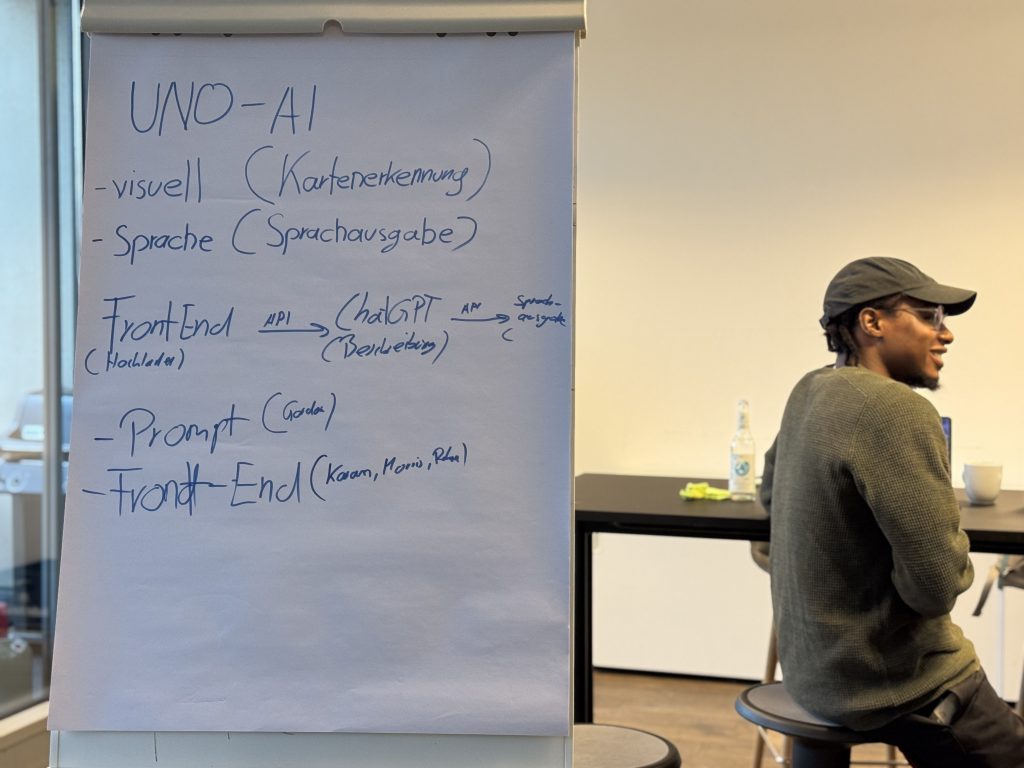 UNO-AI
- visuell (Kartenerkennung)
- Sprache (Sprachausgabe)
FrontEnd API ChatGPT API Sprach-
ausgabe
(Hochladen) (Beschreibung) (
- Prompt
- Frondt-End (Karam,